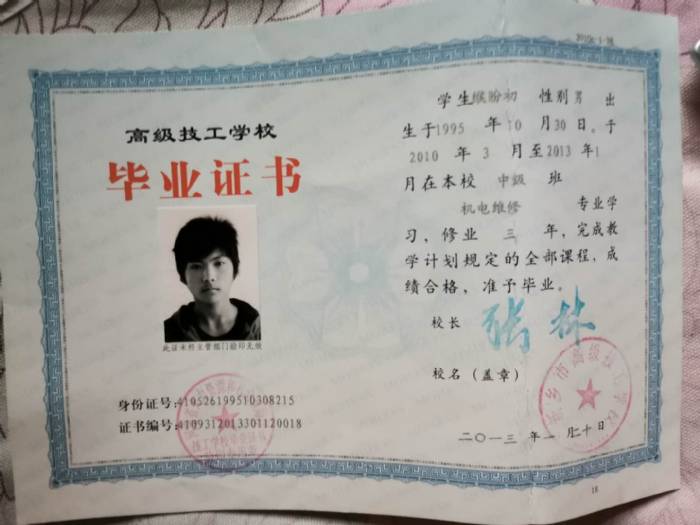 高级技工学校
毕业证书
此证未经主管部门验印无效
身份证号:410526199510308215
证书编号:4109312013301120018
学生缑盼初 性别男 出
生于1995 年10 月30日。于
2010 年 3 月至2013 年1
月在本校 中级 班
机电维修 专业学
习,修业 三 年,完成教
学计划规定的全部课程,成
绩合格,准予毕业。
校长 张林
校名(盖章)
市高级技工学校
二〇一三 年 一 月 二十日
18